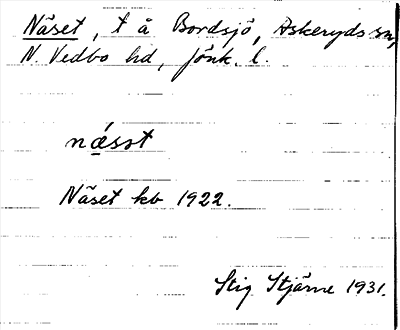 Näset, t å Bordsjö, Askeryds sn,
N. Vedbo hd, Jönk. l.
näsət
Näset kb 1922.
Stig Stjärne 1931.